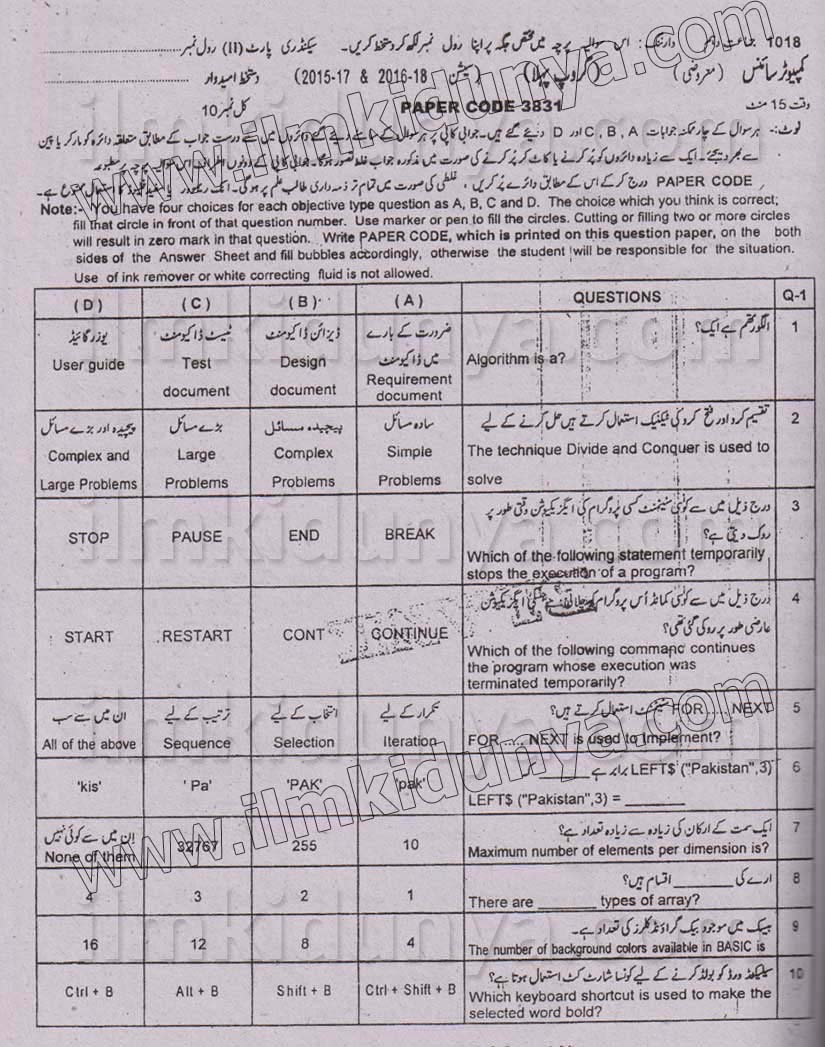 1018 جماعت دہم وارننگ: اس سوالیہ پرچہ میں مختص جگہ پر اپنا رول نمبر لکھ کر دستخط کریں۔ سیکنڈری پارٹ (II) رول نمبر
کمپیوٹر سائنس (معروضی) (گروپ پہلا) (سیشن 2016-18 & 2015-17) دستخط امیدوار
وقت 15 منٹ PAPER CODE 3831 کل نمبر 10
نوٹ:- ہر سوال کے چار ممکنہ جوابات A ,B ,C اور D دیئے گئے ہیں۔ جوابی کاپی پر ہر سوال کے سامنے دیئے گئے دائروں میں سے درست جواب کے مطابق متعلقہ دائرہ کو مارکر یا پین
سے بھر دیجئے۔ ایک سے زیادہ دائروں کو پُر کرنے یا کاٹ کر پُر کرنے کی صورت میں مذکورہ جواب غلط تصور ہوگا۔ جوابی کاپی کے دونوں اطراف اس سوالیہ پرچہ پر مطبوعہ
PAPER CODE درج کر کے اس کے مطابق دائرے پُر کریں، غلطی کی صورت میں تمام تر ذمہ داری طالب علم پر ہوگی۔ انک ریموور یا سفید فلیوڈ کا استعمال ممنوع ہے۔
Note:- You have four choices for each objective type question as A, B, C and D. The choice which you think is correct;
fill that circle in front of that question number. Use marker or pen to fill the circles. Cutting or filling two or more circles
will result in zero mark in that question. Write PAPER CODE, which is printed on this question paper, on the both
sides of the Answer Sheet and fill bubbles accordingly, otherwise the student will be responsible for the situation.
Use of ink remover or white correcting fluid is not allowed.
(D) (C) (B) (A) QUESTIONS Q-1
یوزر گائیڈ ٹیسٹ ڈاکیومنٹ ڈیزائن ڈاکیومنٹ ضرورت کے بارے الگورتھم ہے ایک؟ 1
میں ڈاکیومنٹ
User guide Test Design Requirement Algorithm is a?
document document document
پیچیدہ اور بڑے مسائل بڑے مسائل پیچیدہ مسائل سادہ مسائل تقسیم کرو اور فتح کرو کی ٹیکنیک استعمال کرتے ہیں حل کرنے کے لیے 2
Complex and Large Complex Simple The technique Divide and Conquer is used to
Large Problems Problems Problems Problems solve
درج ذیل میں سے کونسی سٹیٹمنٹ کسی پروگرام کی ایگزیکیوشن وقتی طور پر 3
روک دیتی ہے؟
STOP PAUSE END BREAK Which of the following statement temporarily
stops the execution of a program?
درج ذیل میں سے کونسی کمانڈ اُس پروگرام کو چلاتی ہے جسکی ایگزیکیوشن 4
عارضی طور پر روکی گئی تھی؟
START RESTART CONT CONTINUE Which of the following command continues
the program whose execution was
terminated temporarily?
ان میں سے سب ترتیب کے لیے انتخاب کے لیے تکرار کے لیے FOR.....NEXT سٹیٹمنٹ استعمال کرتے ہیں؟ 5
All of the above Sequence Selection Iteration FOR.....NEXT is used to Implement?
'kis' 'Pa' 'PAK' 'pak' LEFT$ ("Pakistan",3) برابر ہے ______ کے 6
LEFT$ ("Pakistan",3) = _______
اِن میں سے کوئی نہیں ایک سمت کے ارکان کی زیادہ سے زیادہ تعداد ہے؟ 7
None of them 32767 255 10 Maximum number of elements per dimension is?
ارے کی _______ اقسام ہیں؟ 8
4 3 2 1 There are _______ types of array?
بیسک میں موجود بیک گراؤنڈ کلرز کی تعداد ہے۔ 9
16 12 8 4 The number of background colors available in BASIC is
سیلیکٹڈ ورڈ کو بولڈ کرنے کے لیے کونسا شارٹ کٹ استعمال ہوتا ہے؟ 10
Ctrl + B Alt + B Shift + B Ctrl + Shift + B Which keyboard shortcut is used to make the
selected word bold?
www.ilmkidunya.com
www.ilmkidunya.com
ilmkidunya.com
ilmkidunya.com
ilmkidunya.com
ilmkidunya.com
ilmkidunya.com